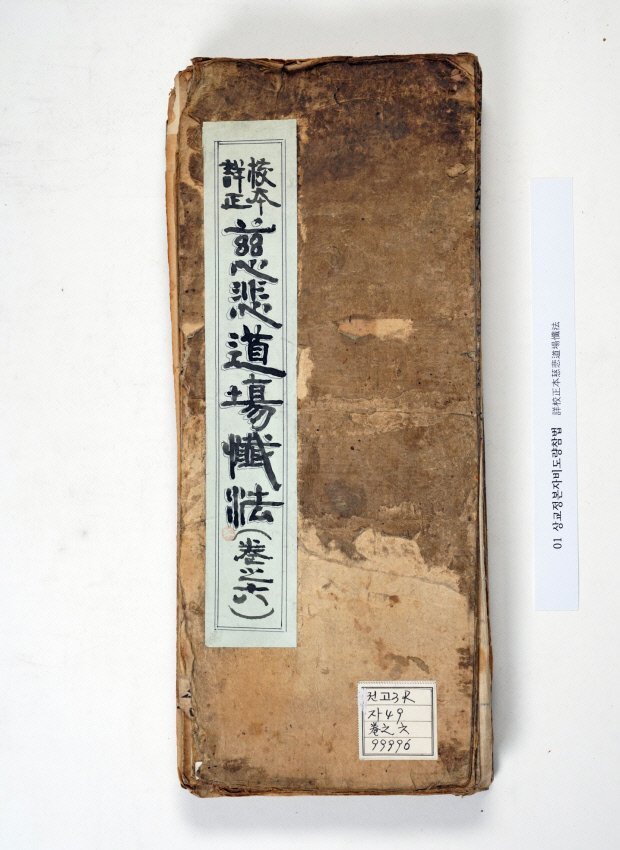 詳校
正本
慈悲道場懺法(卷之六)
전고3R
자49
卷之六
99996
01 상교정본자비도량참법 詳校正本慈悲道場懺法